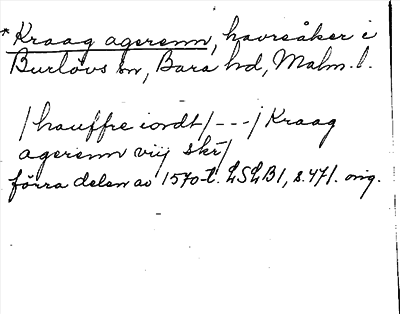 *Kraag agerenn, havreåker i
Burlövs sn, Bara hd, Malm. l.
/hauffre iordt/---/Kraag
agerenn viij skr/
förra delen av 1570-t. LSLB1, s.471. orig.